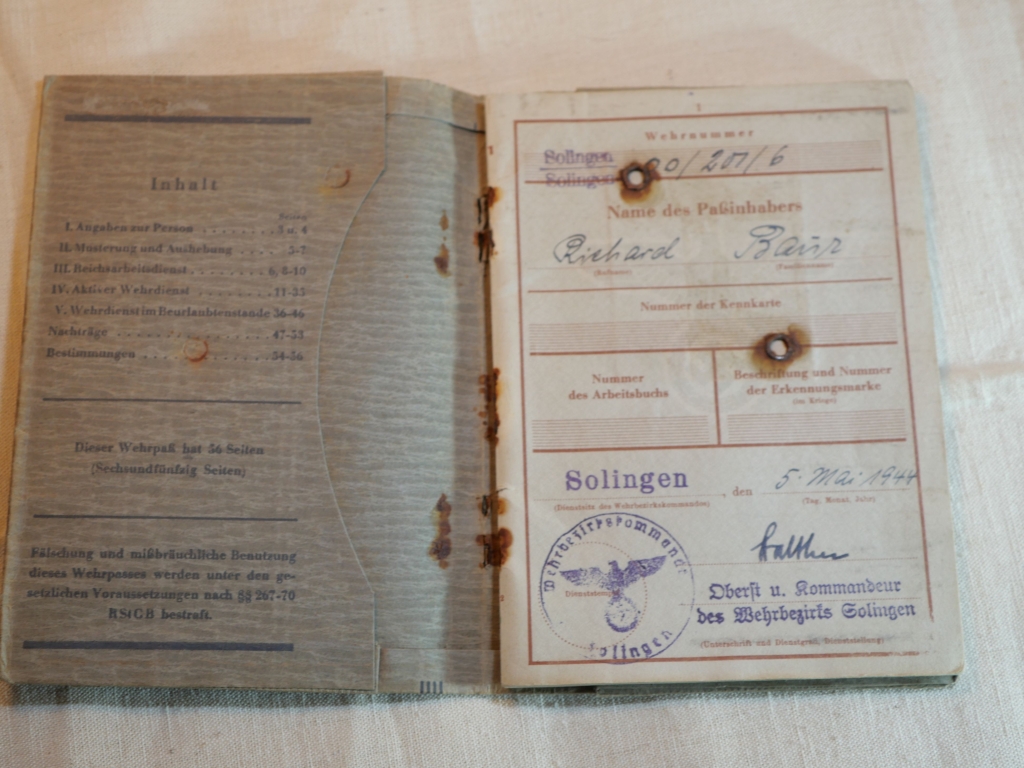 Inhalt
Seiten
I. Angaben zur Person ........ 3 u. 4
II. Musterung und Aushebung .... 5-7
III. Reichsarbeitsdienst ........ 6, 8-10
IV. Aktiver Wehrdienst ........ 11-35
V. Wehrdienst im Beurlaubtenstande 36-46
Nachträge ............ 47-53
Bestimmungen ............ 54-56
Dieser Wehrpaß hat 56 Seiten
(Sechsundfünfzig Seiten)
Fälschung und mißbräuchliche Benutzung
dieses Wehrpasses werden unter den ge-
setzlichen Voraussetzungen nach §§ 267-70
RStGB bestraft.
1
Wehrnummer
Solingen
Solingen
/201/6
Name des Paßinhabers
Richard Baur
(Rufname) (Familienname)
Nummer der Kennkarte
Nummer
des Arbeitsbuchs
Beschriftung und Nummer
der Erkennungsmarke
(im Kriege)
Solingen, den 5. Mai 1944
(Dienstsitz des Wehrbezirkskommandos) (Tag, Monat, Jahr)
Wehrbezirkskommando
Solingen
Walther
Oberst u. Kommandeur
des Wehrbezirks Solingen
(Unterschrift und Dienstgrad, Dienststellung)